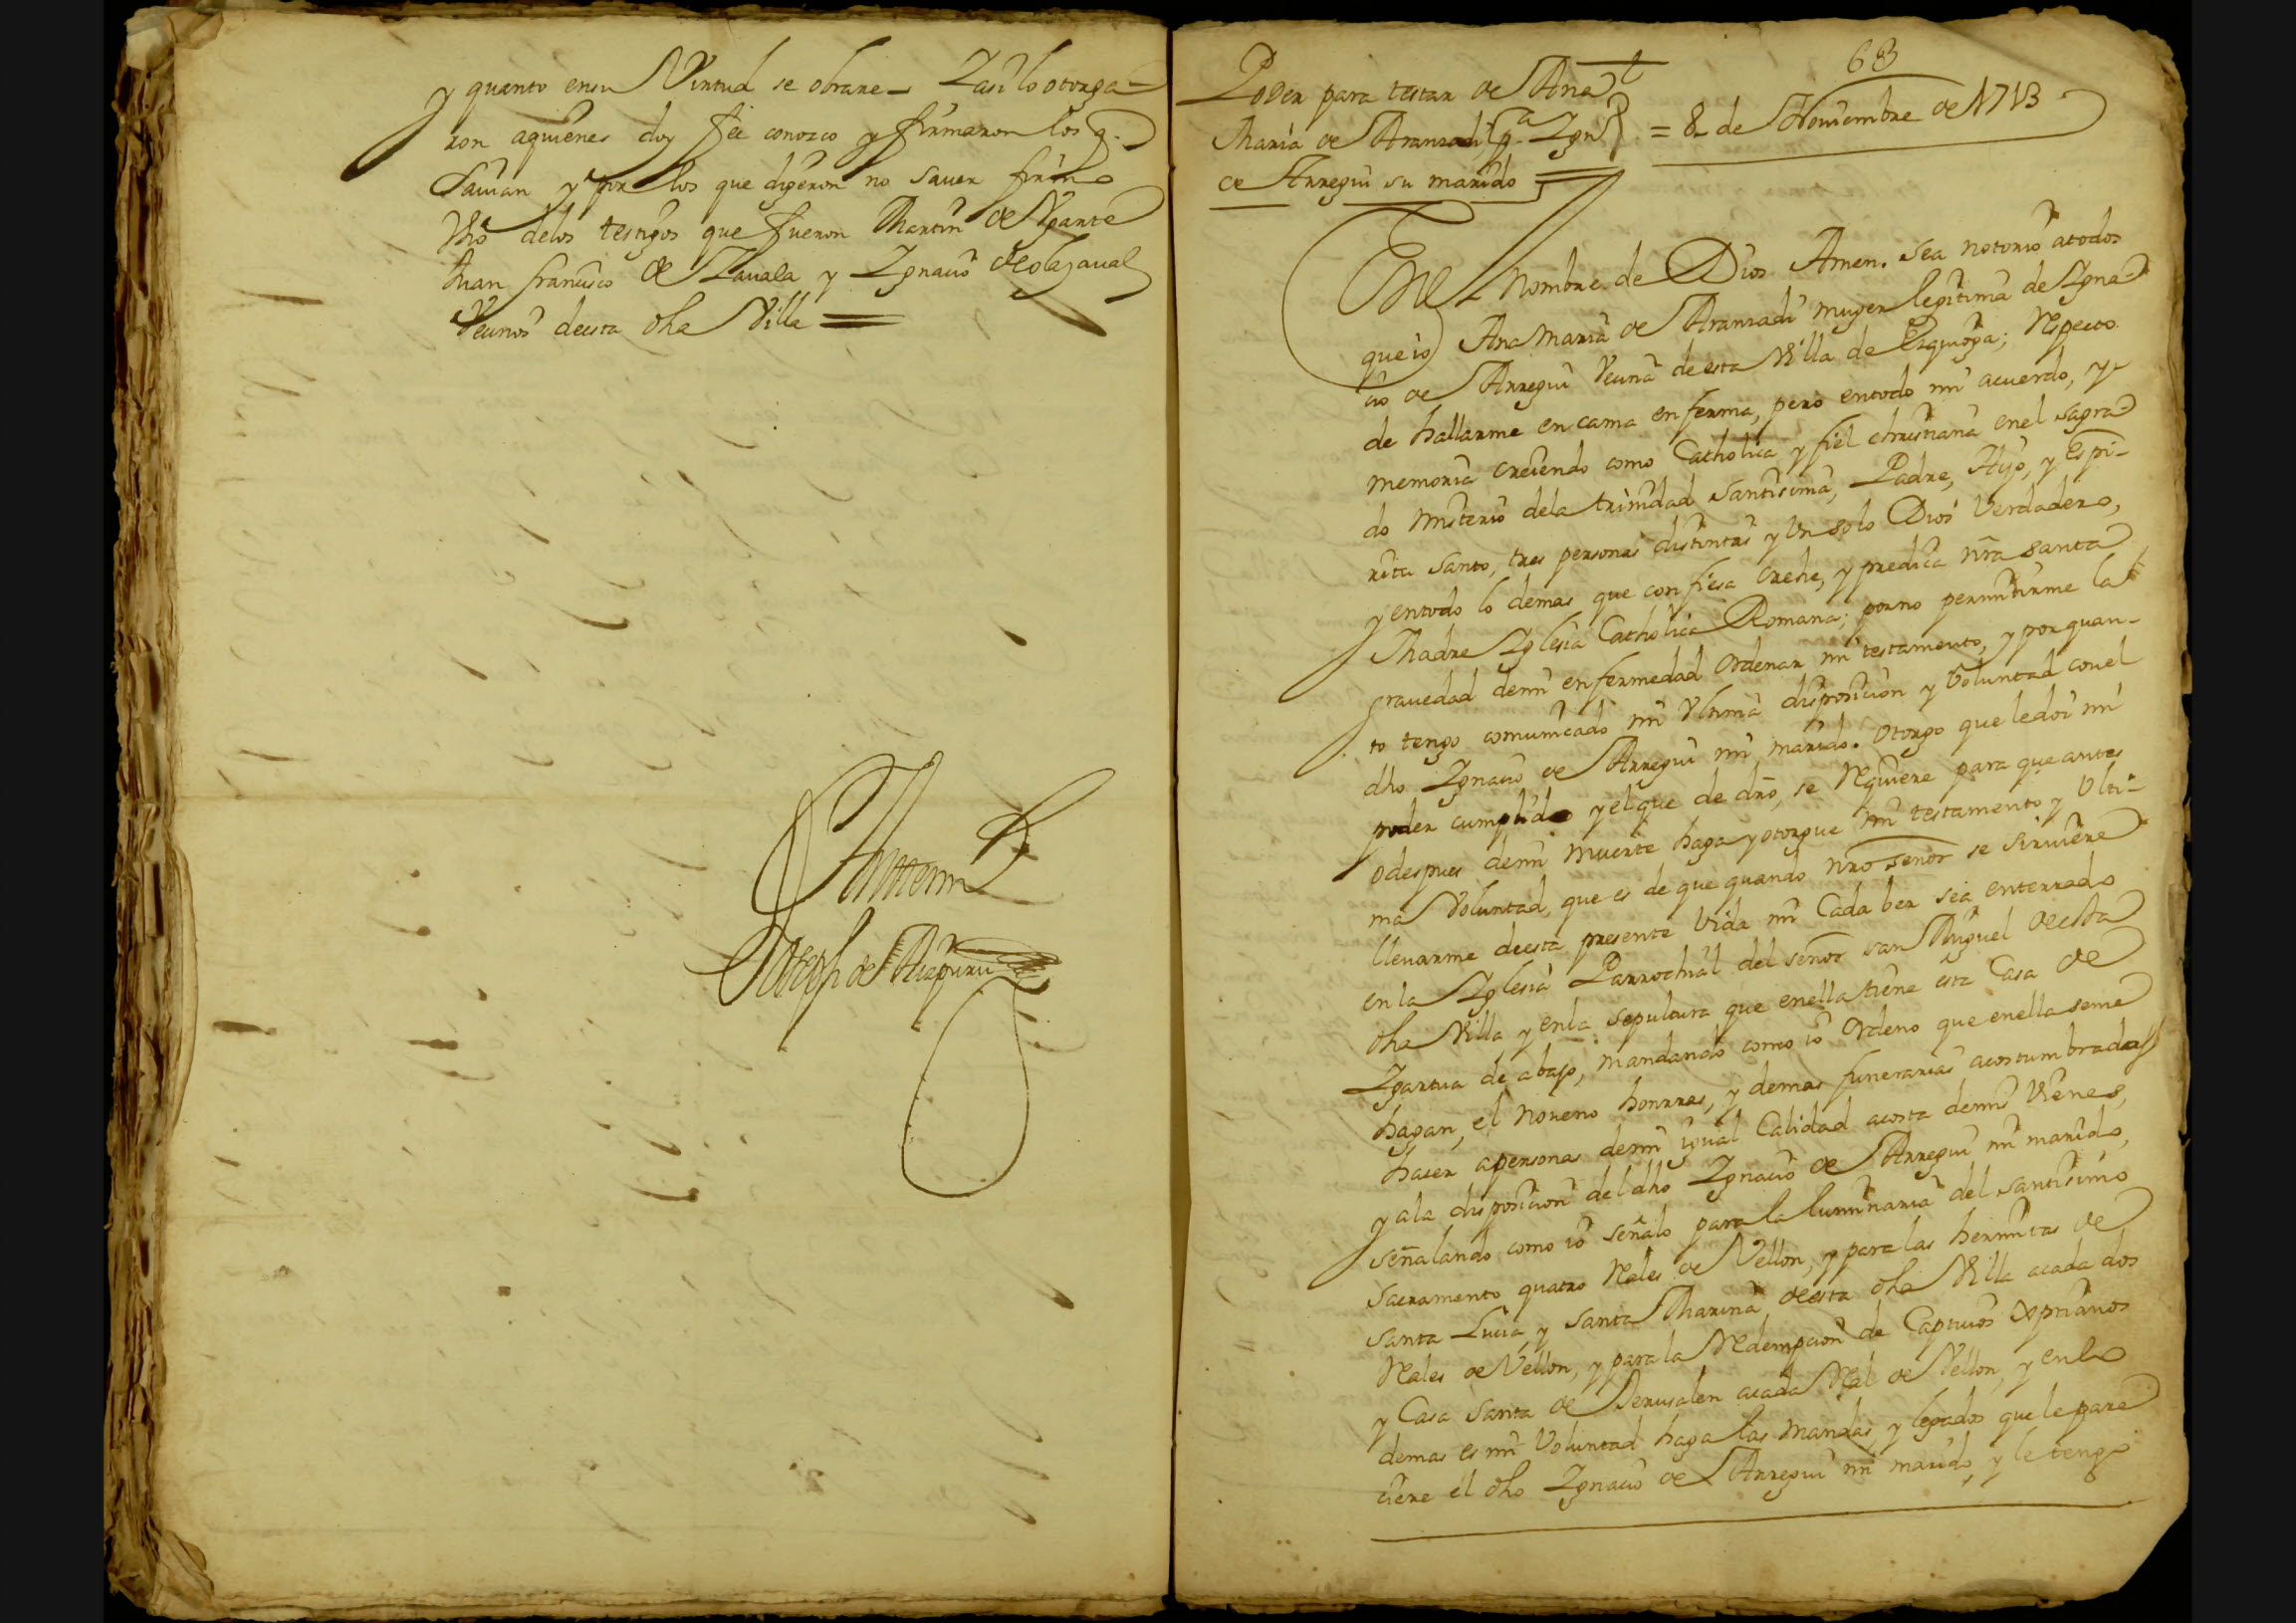 y quanto en su Virtud se obrare - Y asi lo otorga-
ron aquienes doy fee conozco y firmaron los q.
Savian y por los que digeron no saver firmo
Uno delos testigos que fueron Martin de Ygarte
Juan francisco de Zavala y Ygnacio de olazaval
Vecinos de esta dha Villa =
Ante mi
Joseph de Aizpuru
68
Poder para testar de Ana
Maria de Aranzadi pa. Ygno
de Arregui su marido
= 8 de Noviembre de 1713
En el Nombre de Dios Amen. Sea notorio atodos
que io Ana Maria de Aranzadi muger legitima de Ygna-
cio de Arregui Vecina de esta Villa de Ezquioga; Respecto
de hallarme en cama enferma, pero entodo mi acuerdo, y
memoria creiendo como Catholica y fiel christiana enel sagra
do misterio dela trinidad santisima, Padre, Hijo, y Espi-
ritu santo, tres personas distintas y Un solo Dios Verdadero,
y entodo lo demas que confiesa crehe, y predica nra santa
Madre Yglesia Catholica Romana; por no permitirme la
gravedad demi enfermedad Ordenar mi testamento, y por quan-
to tengo comunicado mi Ultima disposicion y Voluntad con el
dho Ygnacio de Arregui mi marido. Otorgo que ledoi mi
poder cumplido y el que de dro, se Requiere para que antes
o despues demi muerte haga y otorgue mi testamento y Ulti-
ma Voluntad, que es de que quando nro señor se sirviere
llevarme deesta presente Vida mi Cadaber sea enterrado
en la Yglesia Parrochial del señor san Miguel deesta
dha Villa y enla sepultura que enella tiene esta Casa de
Ygartua de abajo, mandando como io Ordeno que enella seme
hagan, el Noveno honrras, y demas funerarias acostumbradas
hacer apersonas demi igual Calidad acosta demis Vienes,
y ala disposicion del dho Ygnacio de Arregui mi marido,
señalando como io señalo para la luminaria del santisimo
sacramento quatro Reales de Vellon, y para las hermitas de
santa Lucia, y santa Marina deesta dha Villa acada dos
Reales de Vellon, y para la Redempcion de Captivos Xptianos
y Casa santa de Jerusalen acada Real de Vellon, y en lo
demas es mi Voluntad haga las mandas, y legados que le pare
ciere el dho Ygnacio de Arregui mi marido, y le tengo